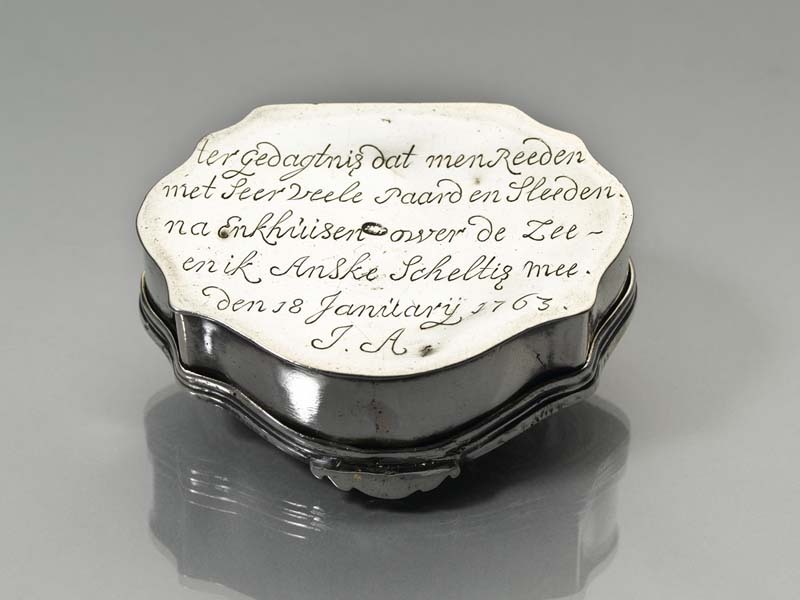 ter gedagtnis dat men Reeden
met Seer veele Paard en Sleeden.
na Enkhuisen over de Zee~
en ik Anske Scheltis mee.
den 18 Januarij 1763.
J. A.